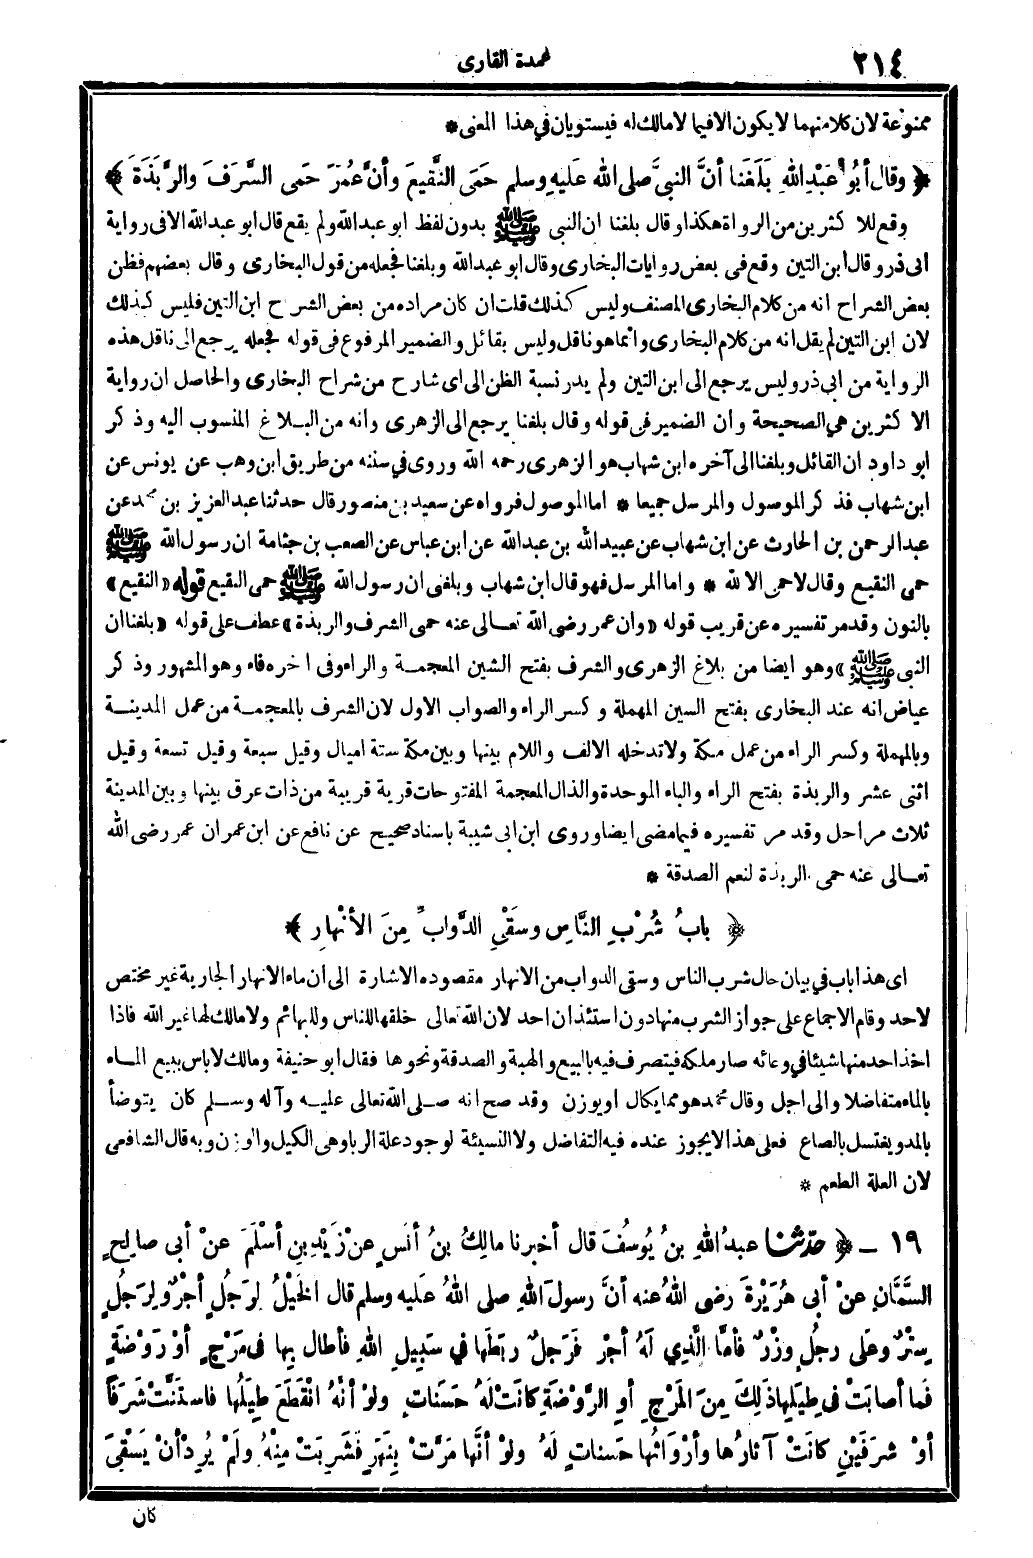 ٢١٤
عمدة القارى
ممنوعة لان كلا منهما لا يكون الا فيما لا مالك له فيستويان في هذا المعنى *
﴿ وقال أبُو عَبْدِ اللهِ بَلَغَنا أنَّ النبيَّ صلى الله عليهِ وسلم حَمَى النَّقِيعَ وأنَّ عُمَرَ حَمى السَّرَفَ والرَّبَذَةَ ﴾
وقع للاكثرين من الرواة هكذا وقال بلغنا ان النبى ﷺ بدون لفظ ابو عبد الله ولم يقع قال ابو عبد الله الا فى رواية
أبى ذر وقال ابن التين وقع فى بعض روايات البخارى وقال ابو عبد الله وبلغنا فجعله من قول البخارى وقال بعضهم فظن
بعض الشراح انه من كلام البخارى المصنف وليس كذلك قلت ان كان مراده من بعض الشراح ابن التين فليس كذلك
لان ابن التين لم يقل انه من كلام البخارى وانما هو ناقل وليس بقائل والضمير المرفوع فى قوله فجعله يرجع الى ناقل هذه
الرواية من ابى ذر وليس يرجع الى ابن التين ولم يدر نسبة الظن الى اى شارح من شراح البخارى والحاصل ان رواية
الاكثرين هي الصحيحة وان الضمير فى قوله وقال بلغنا يرجع الى الزهرى وانه من البلاغ المنسوب اليه وذكر
ابو داود ان القائل وبلغنا الى آخره ابن شهاب هو الزهرى رحمه الله وروى في سننه من طريق ابن وهب عن يونس عن
ابن شهاب فذكر الموصول والمرسل جميعا * اما الموصول فرواه عن سعيد بن منصور قال حدثنا عبد العزيز بن محمد عن
عبد الرحمن بن الحارث عن ابن شهاب عن عبيد الله بن عبد الله عن ابن عباس عن الصعب بن جثامة ان رسول الله ﷺ
حمى النقيع وقال لا حمى الا لله * واما المرسل فهو قال ابن شهاب وبلغنى ان رسول الله ﷺ حمى النقيع قوله «النقيع»
بالنون وقد مر تفسيره عن قريب قوله «وان عمر رضى الله تعالى عنه حمى الشرف والربذة» عطف على قوله «بلغنا ان
النبى ﷺ» وهو ايضا من بلاغ الزهرى والشرف بفتح الشين المعجمة والراء وفى اخره فاء وهو المشهور وذكر
عياض انه عند البخارى بفتح السين المهملة وكسر الراء والصواب الاول لان الشرف بالمعجمة من عمل المدينة
وبالمهملة وكسر الراء من عمل مكة ولا تدخله الالف واللام بينها وبين مكة ستة اميال وقيل سبعة وقيل تسعة وقيل
اثنى عشر والربذة بفتح الراء والباء الموحدة والذال المعجمة المفتوحات قرية قريبة من ذات عرق بينها وبين المدينة
ثلاث مراحل وقد مر تفسيره فيما مضى ايضا وروى ابن ابى شيبة باسناد صحيح عن نافع عن ابن عمر ان عمر رضى الله
تعالى عنه حمى الربذة لنعم الصدقة *
﴿ بابُ شُرْبِ النَّاسِ وسَقْيِ الدَّوابِّ مِنَ الأنْهارِ ﴾
اى هذا باب في بيان حال شرب الناس وسقى الدواب من الانهار مقصوده الاشارة الى أن ماء الانهار الجارية غير مختص
لاحد وقام الاجماع على جواز الشرب منها دون استئذان احد لان الله تعالى خلقها للناس وللبهائم ولا مالك لها غير الله فاذا
اخذ احد منها شيئا في وعائه صار ملكه فيتصرف فيه بالبيع والهبة والصدقة ونحوها فقال ابو حنيفة ومالك لا باس ببيع الماء
بالماء متفاضلا والى اجل وقال محمد هو مما يكال او يوزن وقد صح انه صلى الله تعالى عليه وآله وسلم كان يتوضأ
بالمد ويغتسل بالصاع فعلى هذا لا يجوز عنده فيه التفاضل ولا النسيئة لوجود علة الربا وهى الكيل والوزن وبه قال الشافعى
لان العلة الطعم *
١٩ ـ ﴿ حدّثنا عبدُ اللهِ بنُ يُوسُفَ قال أخبرنا مالِكُ بنُ أنَسٍ عنْ زَيْدِ بنِ أسْلَمَ عنْ أبى صالِحٍ
السَّمَّانِ عنْ أبى هُرَيْرةَ رضى اللهُ عنه أنَّ رسولَ اللهِ صلى اللهُ عليه وسلم قال الخَيْلُ لِرَجُلٍ أجْرٌ ولِرَجُلٍ
سِتْرٌ وعلَى رجُلٍ وِزْرٌ فأمَّا الَّذِي لَهُ أجْر فَرَجلٌ ربَطَها في سَبِيلِ اللهِ فأطال بِها فى مَرْجٍ أوْ رَوْضَةٍ
فَما أصابَتْ فى طِيَلِها ذَلِكَ مِنَ المَرْجِ أوِ الرَّوْضَةِ كانَتْ لَهُ حَسَنات ولوْ أنَّهُ انْقَطَعَ طِيَلُها فاستَنَّتْ شَرَفاً
أوْ شرَفَيْنِ كانَتْ آثارُها وأرْوَاثُها حَسناتٍ لَهُ ولوْ أنَّها مَرَّتْ بِنَهَرٍ فَشَرِبَتْ مِنْهُ ولَمْ يُرِدْ أنْ يَسْقِىَ
كان